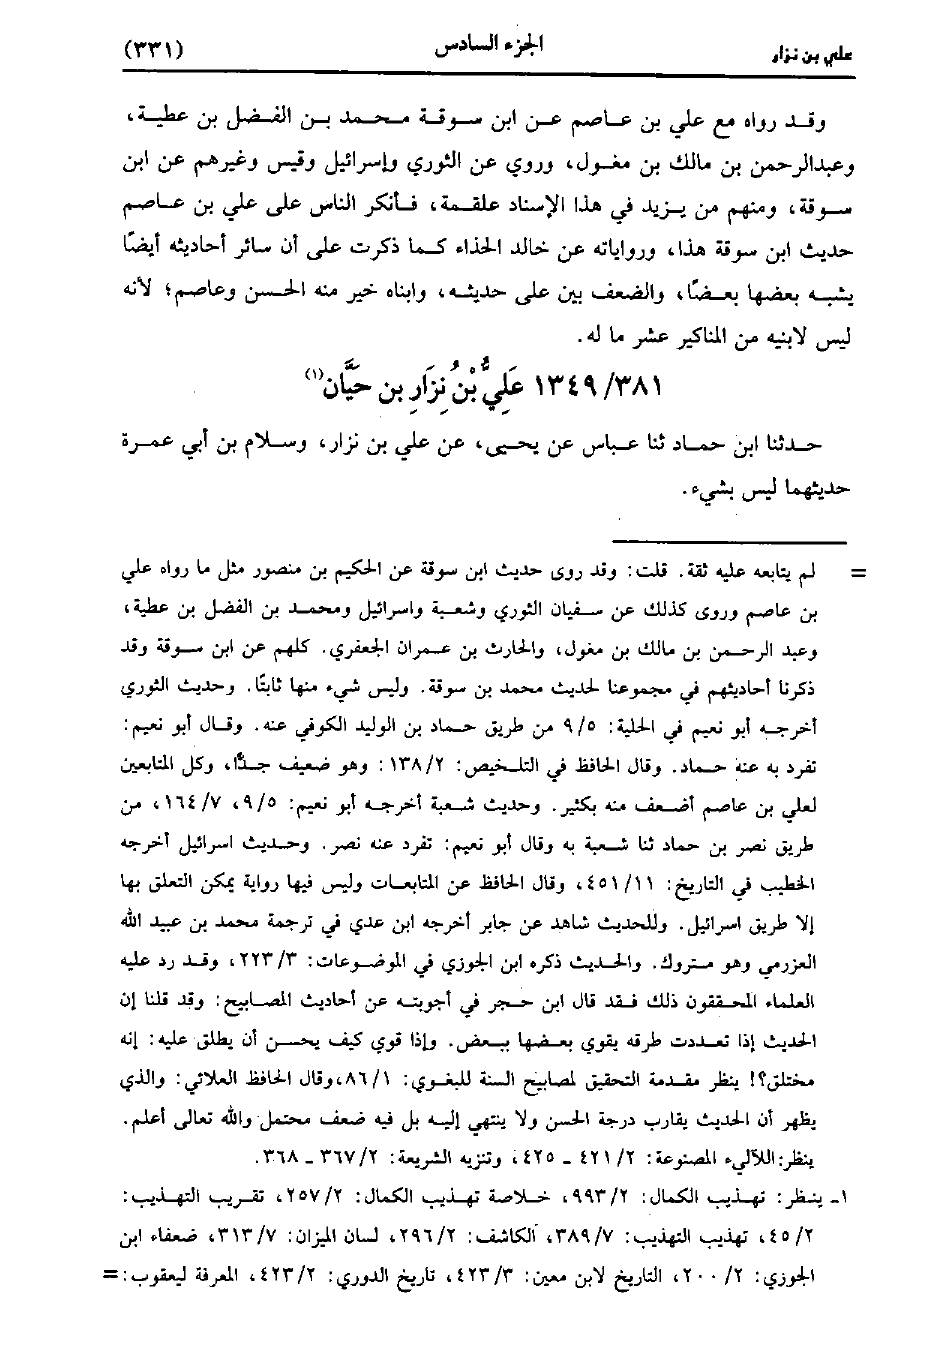 علي بن نزار الجزء السادس (٣٣١)
وقد رواه مع علي بن عاصم عن ابن سوقة محمد بن الفضل بن عطية،
وعبدالرحمن بن مالك بن مغول، وروي عن الثوري وإسرائيل وقيس وغيرهم عن ابن
سوقة، ومنهم من يزيد في هذا الإسناد علقمة، فأنكر الناس على علي بن عاصم
حديث ابن سوقة هذا، ورواياته عن خالد الحذاء كما ذكرت على أن سائر أحاديثه أيضًا
يشبه بعضها بعضًا، والضعف بين على حديثه، وابناه خير منه الحسن وعاصم؛ لأنه
ليس لابنيه من المناكير عشر ما له.
١٣٤٩/٣٨١ عَلِيُّ بْنُ نِزَارِ بن حَيَّان(١)
حدثنا ابن حماد ثنا عباس عن يحيى، عن علي بن نزار، وسلام بن أبي عمرة
حديثهما ليس بشيء.
= لم يتابعه عليه ثقة. قلت: وقد روى حديث ابن سوقة عن الحكيم بن منصور مثل ما رواه علي
بن عاصم وروى كذلك عن سفيان الثوري وشعبة واسرائيل ومحمد بن الفضل بن عطية،
وعبد الرحمن بن مالك بن مغول، والحارث بن عمران الجعفري. كلهم عن ابن سوقة وقد
ذكرنا أحاديثهم في مجموعنا لحديث محمد بن سوقة. وليس شيء منها ثابتًا. وحديث الثوري
أخرجه أبو نعيم في الحلية: ٩/٥ من طريق حماد بن الوليد الكوفي عنه. وقال أبو نعيم:
تفرد به عنه حماد. وقال الحافظ في التلخيص: ١٣٨/٢: وهو ضعيف جدًا، وكل المتابعين
لعلي بن عاصم أضعف منه بكثير. وحديث شعبة أخرجه أبو نعيم: ٩/٥، ١٦٤/٧، من
طريق نصر بن حماد ثنا شعبة به وقال أبو نعيم: تفرد عنه نصر. وحديث اسرائيل أخرجه
الخطيب في التاريخ: ٤٥١/١١، وقال الحافظ عن المتابعات وليس فيها رواية يمكن التعلق بها
إلا طريق اسرائيل. وللحديث شاهد عن جابر أخرجه ابن عدي في ترجمة محمد بن عبيد الله
العزرمي وهو متروك. والحديث ذكره ابن الجوزي في الموضوعات: ٢٢٣/٣، وقد رد عليه
العلماء المحققون ذلك فقد قال ابن حجر في أجوبته عن أحاديث المصابيح: وقد قلنا إن
الحديث إذا تعددت طرقه يقوي بعضها ببعض. وإذا قوي كيف يحسن أن يطلق عليه: إنه
مختلق؟! ينظر مقدمة التحقيق لمصابيح السنة للبغوي: ٨٦/١،وقال الحافظ العلائي: والذي
يظهر أن الحديث يقارب درجة الحسن ولا ينتهي إليه بل فيه ضعف محتمل والله تعالى أعلم.
ينظر:اللآليء المصنوعة: ٤٢١/٢ ـ ٤٢٥، وتنزيه الشريعة: ٣٦٧/٢ ـ ٣٦٨.
١ـ ينظر: تهذيب الكمال: ٩٩٣/٢، خلاصة تهذيب الكمال: ٢٥٧/٢، تقريب التهذيب:
٤٥/٢، تهذيب التهذيب: ٣٨٩/٧، الكاشف: ٢٩٦/٢، لسان الميزان: ٣١٣/٧، ضعفاء ابن
الجوزي: ٢٠٠/٢، التاريخ لابن معين: ٤٢٣/٣، تاريخ الدوري: ٤٢٣/٢، المعرفة ليعقوب: =